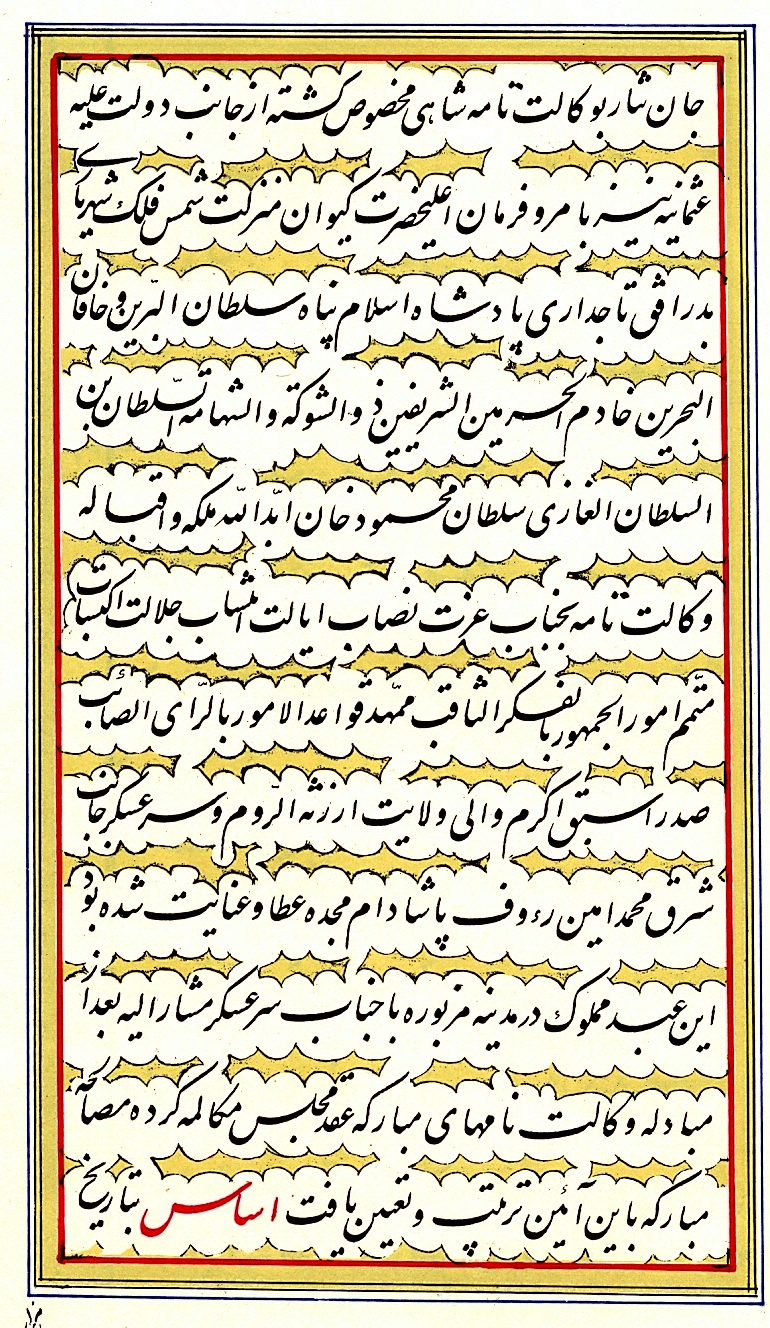 جان نثار بوکالت نامه شاهی مخصوص گشته از جانب دولت علیه
عثمانیه نیز بامر و فرمان اعلیحضرت کیوان منزلت شمس فلک شهریاری
بدر افق تاجداری پادشاه اسلام پناه سلطان البرین و خاقان
البحرین خادم الحرمین الشریفین ذو الشوکة و الشهامة السلطان بن
السلطان الغازی سلطان محمود خان ابد الله ملکه و اقباله
وکالت نامه بجناب عزت نصاب ایالت انتساب جلالت اکتساب
متمم امور الجمهور بالفکر الثاقب ممهد قواعد الامور بالرّای الصائب
صدر اسبق اکرم والی ولایت ارزنه الرّوم و سرعسکر جانب
شرق محمد امین رءوف پاشا دام مجده عطا و عنایت شده بود
این عبد مملوک در مدینه مزبوره با جناب سرعسکر مشار الیه بعد از
مبادله وکالت نامهای مبارکه عقد مجلس مکالمه کرده مصالحه
مبارکه باین آئین ترتیب و تعیین یافت اساس بتاریخ